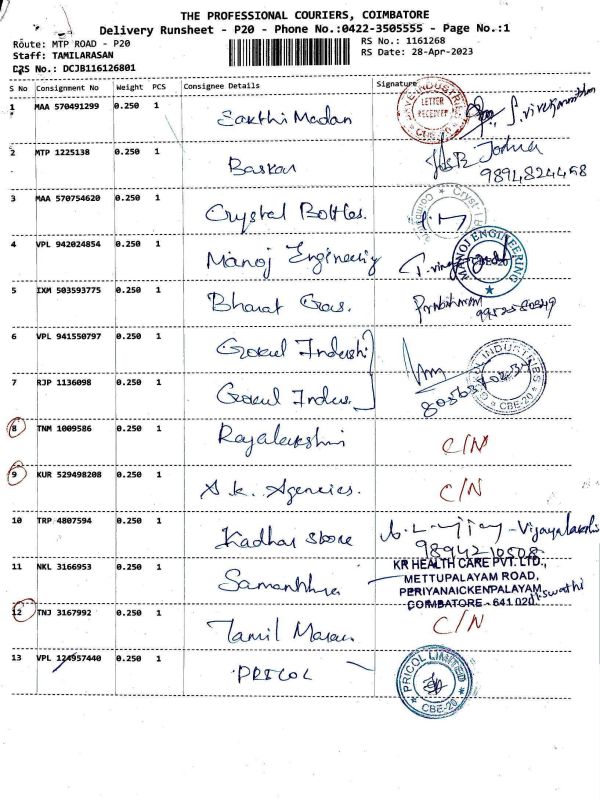 THE PROFESSIONAL COURIERS, COIMBATORE
Delivery Runsheet - P20 - Phone No.:0422-3505555 - Page No.:1
Route: MTP ROAD - P20
RS No.: 1161268
Staff: TAMILARASAN
RS Date: 28-Apr-2023
DRS No.: DCJB116126801
S No Consignment No Weight PCS Consignee Details Signature
1 MAA 570491299 0.250 1 Sakthi Madan LETTER RECEIVED CBE-20
2 MTP 1225138 0.250 1 Baskar Joshua
9894824468
3 MAA 570754620 0.250 1 Crystal Bottles.
4 VPL 942024854 0.250 1 Manoj Engineering MANOJ ENGINEERING CBE-20
5 IXM 503593775 0.250 1 Bharat Gas.
6 VPL 941550797 0.250 1 Gokul Industri
7 RJP 1136098 0.250 1 Gokul Indus. INDUSTRIES CBE-20
8 TNM 1009586 0.250 1 Rajalakshmi C/N
9 KUR 529498208 0.250 1 A.k. Agencies. C/N
10 TRP 4807594 0.250 1 Kadhar store
9894210508
11 NKL 3166953 0.250 1 KR HEALTH CARE PVT. LTD.,
METTUPALAYAM ROAD,
PERIYANAICKENPALAYAM,
COIMBATORE - 641 020
12 TNJ 3167992 0.250 1 Tamil Maran C/N
13 VPL 124957440 0.250 1 PRICOL PRICOL LIMITED CBE-20